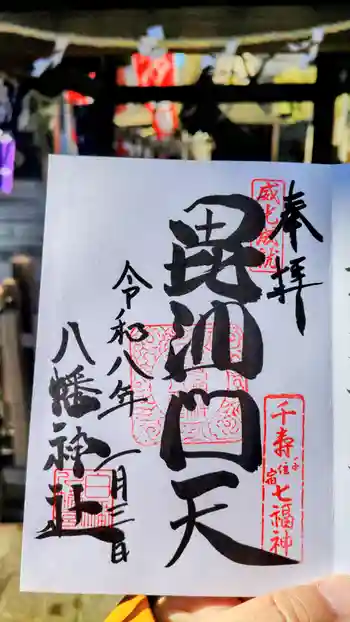 奉拝
威光成就
千寿
千住宿
七福神
毘沙門天
令和八年一月三日
八幡神社